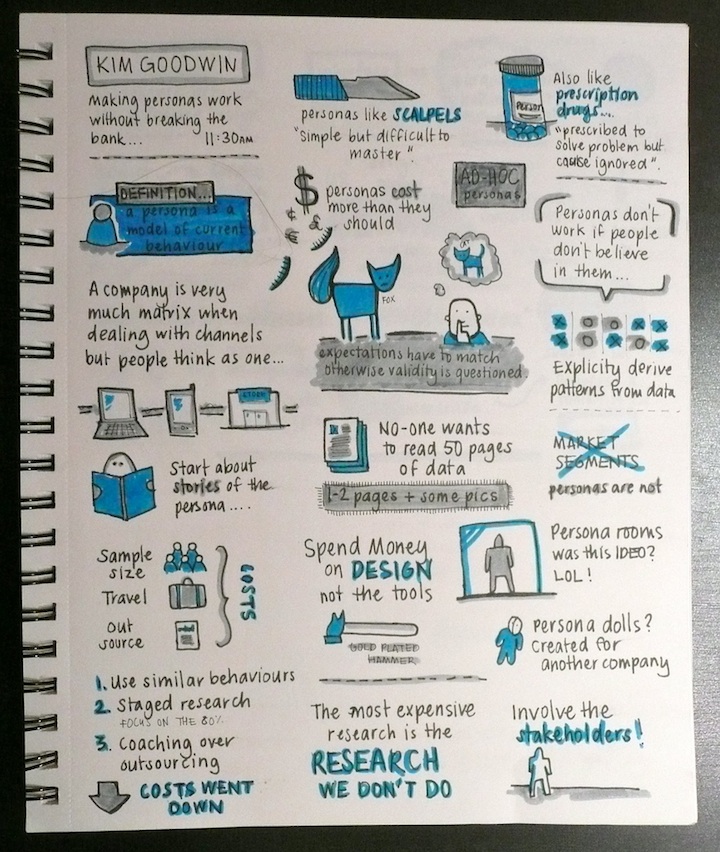 KIM GOODWIN
making personas work
without breaking the
bank... 11:30AM
DEFINITION...
a persona is a
model of current
behaviour
A company is very
much matrix when
dealing with channels
but people think as one...
STORE
Start about
stories of the
persona....
Sample
size
Travel
Out
source
COSTS
1. Use similar behaviours
2. Staged research
FOCUS ON THE 80%
3. Coaching over
outsourcing
COSTS WENT
DOWN
personas like SCALPELS
"simple but difficult to
master".
$ personas cost
more than they
should
£
FOX
expectations have to match
otherwise validity is questioned.
NO-ONE wants
to read 50 pages
of data
1-2 pages + some pics
Spend Money
on DESIGN
not the tools
GOLD PLATED
HAMMER
The most expensive
research is the
RESEARCH
WE DON'T DO
Person
Also like
prescription
drugs...
"prescribed to
solve problem but
cause ignored".
AD-HOC
personas
Personas don't
work if people
don't believe
in them...
Explicity derive
patterns from data
MARKET
SEGMENTS
personas are not
Persona rooms
was this IDEO?
LOL!
Persona dolls?
Created for
another company
Involve the
stakeholders!